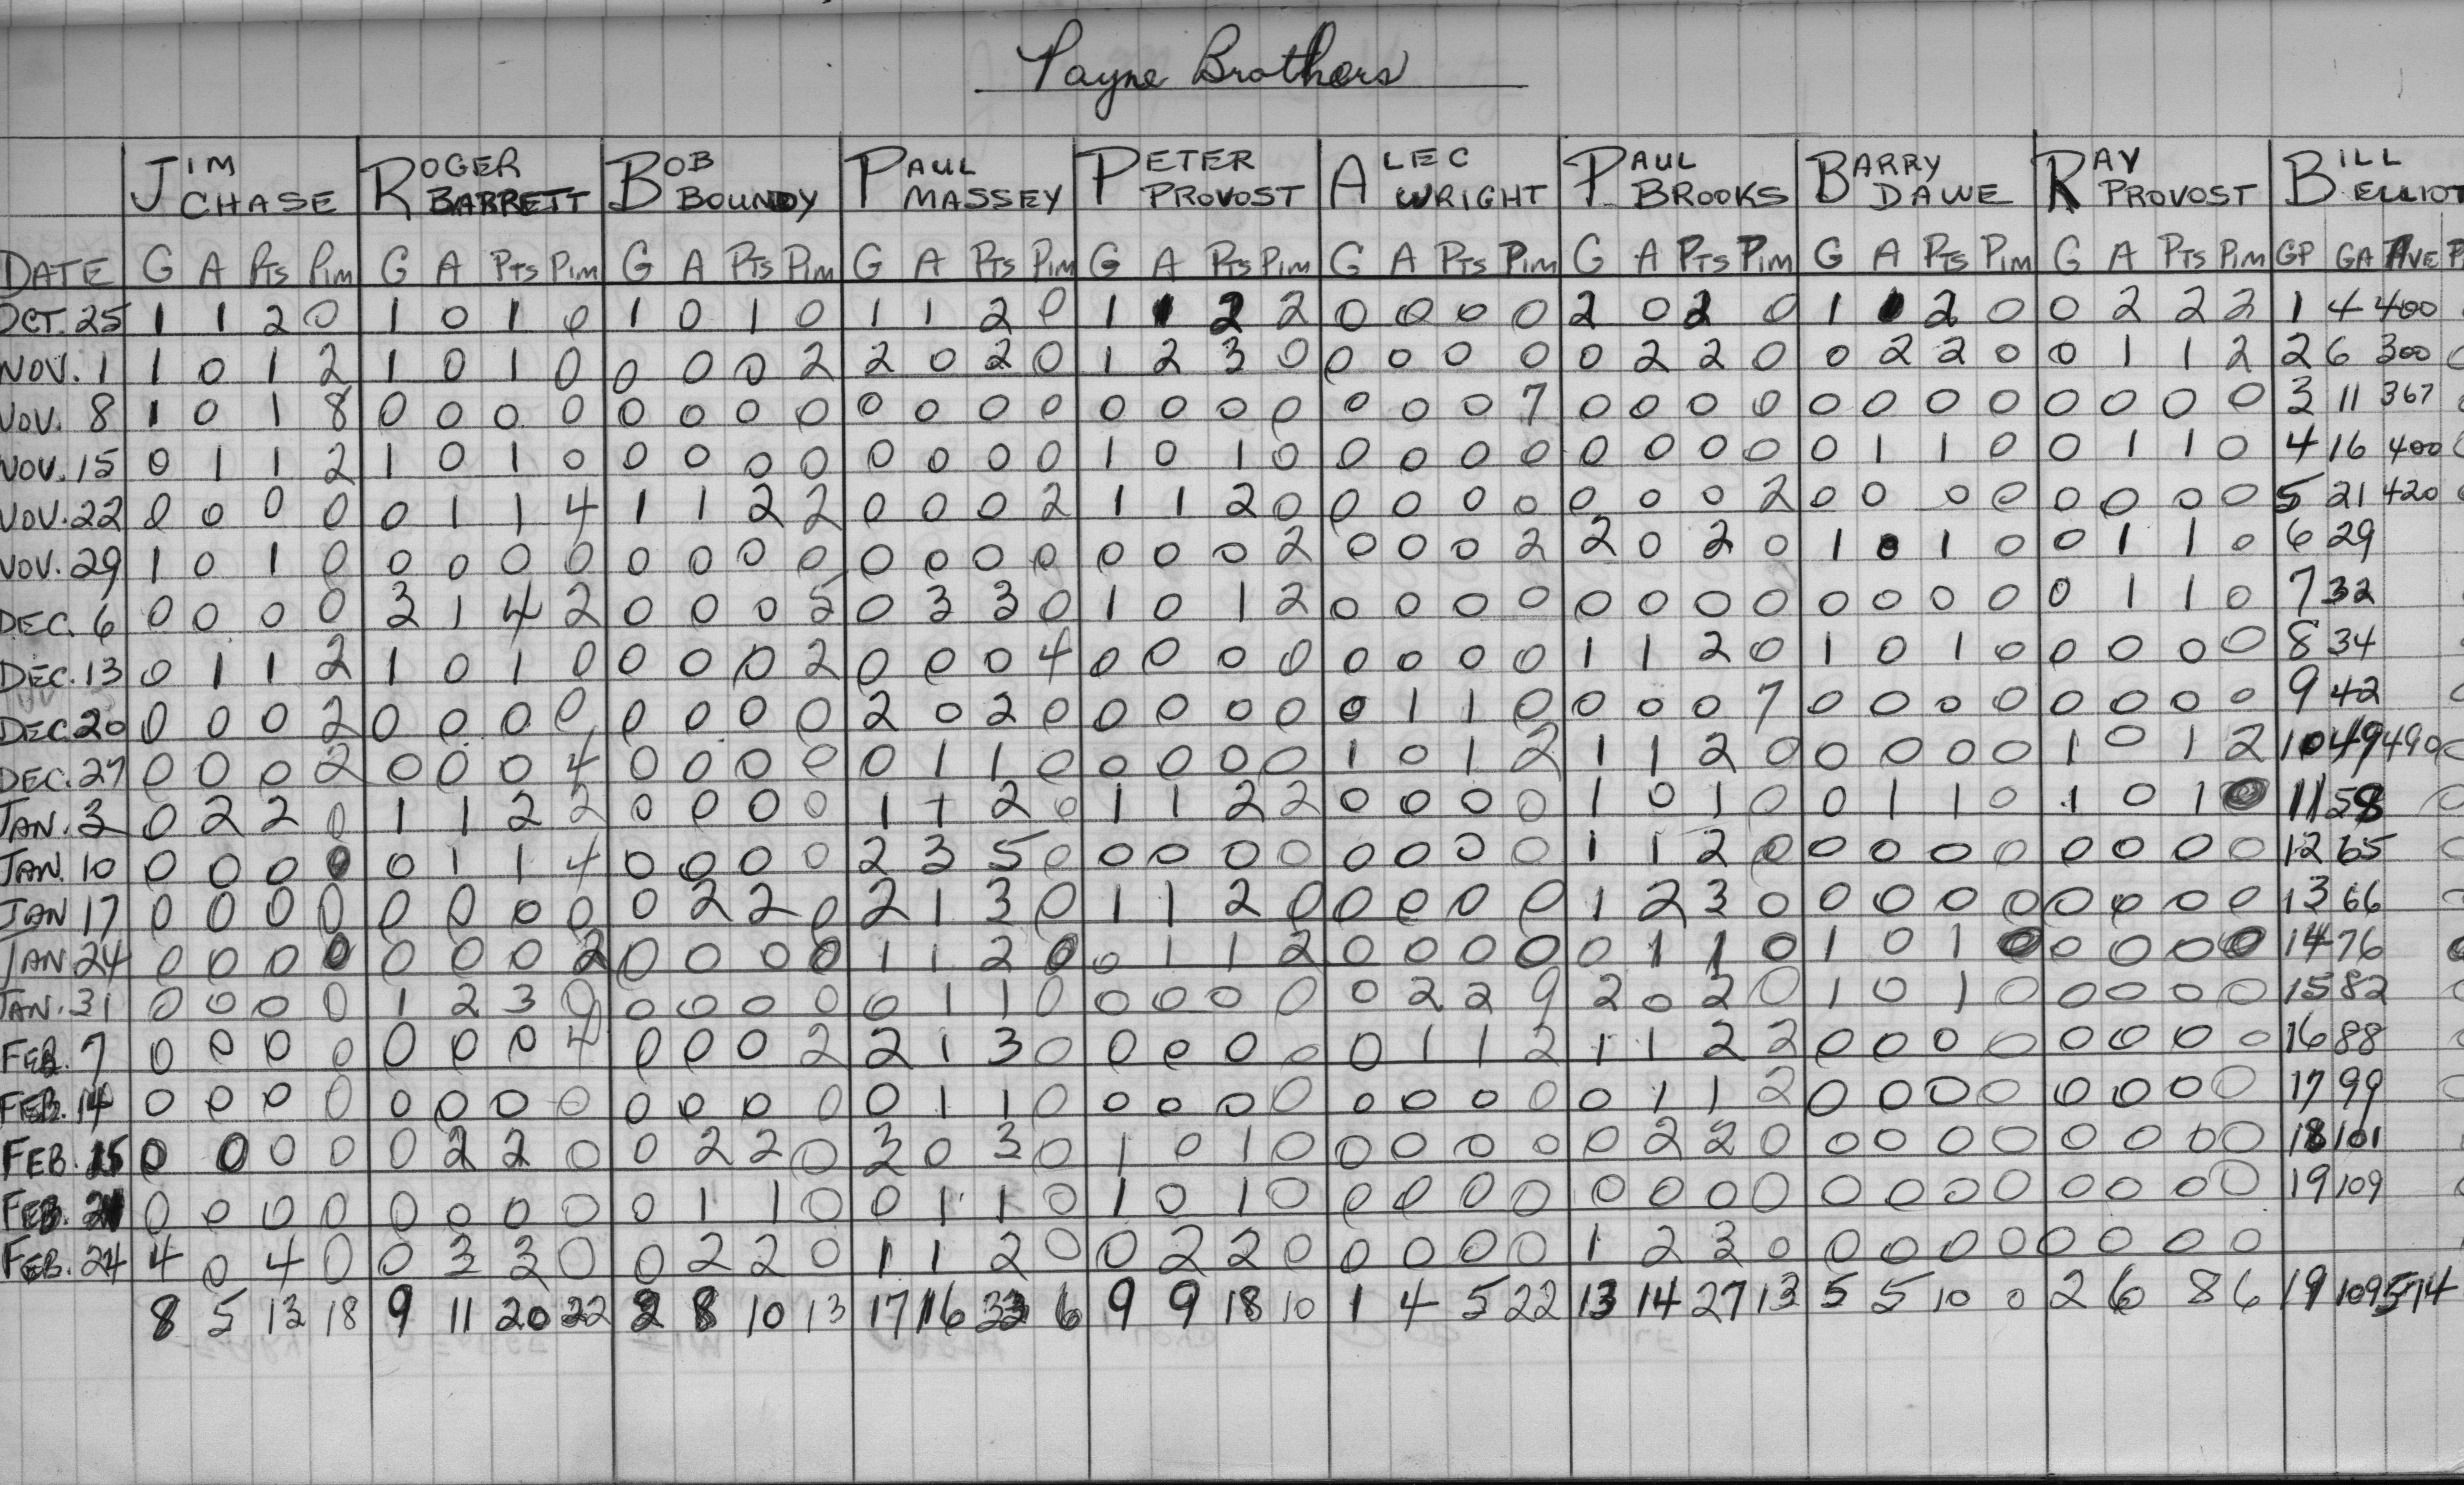 Payne Brothers
JIM CHASE ROGER BARRETT BOB BOUNDY PAUL MASSEY PETER PROVOST ALEC WRIGHT PAUL BROOKS BARRY DAWE RAY PROVOST BILL ELLIOT
DATE G A Pts Pim G A Pts Pim G A Pts Pim G A Pts Pim G A Pts Pim G A Pts Pim G A Pts Pim G A Pts Pim G A Pts Pim GP GA AVE
OCT. 25 1 1 2 0 1 0 1 0 1 0 1 0 1 1 2 0 1 1 2 2 0 0 0 0 2 0 2 0 1 1 2 0 0 2 2 2 1 4 400
NOV. 1 1 0 1 2 1 0 1 0 0 0 0 2 2 0 2 0 1 2 3 0 0 0 0 0 0 2 2 0 0 2 2 0 0 1 1 2 2 6 300
NOV. 8 1 0 1 8 0 0 0 0 0 0 0 0 0 0 0 0 0 0 0 0 0 0 0 7 0 0 0 0 0 0 0 0 0 0 0 0 3 11 367
NOV. 15 0 1 1 2 1 0 1 0 0 0 0 0 0 0 0 0 1 0 1 0 0 0 0 0 0 0 0 0 0 1 1 0 0 1 1 0 4 16 400
NOV. 22 0 0 0 0 0 1 1 4 1 1 2 2 0 0 0 2 1 1 2 0 0 0 0 0 0 0 0 2 0 0 0 0 0 0 0 0 5 21 420
NOV. 29 1 0 1 0 0 0 0 0 0 0 0 0 0 0 0 0 0 0 0 2 0 0 0 2 2 0 2 0 1 0 1 0 0 1 1 0 6 29
DEC. 6 0 0 0 0 3 1 4 2 0 0 0 5 0 3 3 0 1 0 1 2 0 0 0 0 0 0 0 0 0 0 0 0 0 1 1 0 7 32
DEC. 13 0 1 1 2 1 0 1 0 0 0 0 2 0 0 0 4 0 0 0 0 0 0 0 0 1 1 2 0 1 0 1 0 0 0 0 0 8 34
DEC. 20 0 0 0 2 0 0 0 0 0 0 0 0 2 0 2 0 0 0 0 0 0 1 1 0 0 0 0 7 0 0 0 0 0 0 0 0 9 42
DEC. 27 0 0 0 2 0 0 0 4 0 0 0 0 0 1 1 0 0 0 0 0 1 0 1 2 1 1 2 0 0 0 0 0 1 0 1 2 10 49 490
JAN. 3 0 2 2 0 1 1 2 2 0 0 0 0 1 1 2 0 1 1 2 2 0 0 0 0 1 0 1 0 0 1 1 0 1 0 1 0 11 58
JAN. 10 0 0 0 0 0 1 1 4 0 0 0 0 2 3 5 0 0 0 0 0 0 0 0 0 1 1 2 0 0 0 0 0 0 0 0 0 12 65
JAN 17 0 0 0 0 0 0 0 0 0 2 2 0 2 1 3 0 1 1 2 0 0 0 0 0 1 2 3 0 0 0 0 0 0 0 0 0 13 66
JAN 24 0 0 0 0 0 0 0 2 0 0 0 0 1 1 2 0 0 1 1 2 0 0 0 0 0 1 1 0 1 0 1 0 0 0 0 0 14 76
JAN. 31 0 0 0 0 1 2 3 0 0 0 0 0 0 1 1 0 0 0 0 0 0 2 2 9 2 0 2 0 1 0 1 0 0 0 0 0 15 82
FEB. 7 0 0 0 0 0 0 0 4 0 0 0 2 2 1 3 0 0 0 0 0 0 1 1 2 1 1 2 2 0 0 0 0 0 0 0 0 16 88
FEB. 14 0 0 0 0 0 0 0 0 0 0 0 0 0 1 1 0 0 0 0 0 0 0 0 0 0 1 1 2 0 0 0 0 0 0 0 0 17 99
FEB. 15 0 0 0 0 0 2 2 0 0 2 2 0 3 0 3 0 1 0 1 0 0 0 0 0 0 2 2 0 0 0 0 0 0 0 0 0 18 101
FEB. 21 0 0 0 0 0 0 0 0 0 1 1 0 0 1 1 0 1 0 1 0 0 0 0 0 0 0 0 0 0 0 0 0 0 0 0 0 19 109
FEB. 24 4 0 4 0 0 3 3 0 0 2 2 0 1 1 2 0 0 2 2 0 0 0 0 0 1 2 3 0 0 0 0 0 0 0 0 0
8 5 13 18 9 11 20 22 2 8 10 13 17 16 33 6 9 9 18 10 1 4 5 22 13 14 27 13 5 5 10 0 2 6 8 6 19 109 574